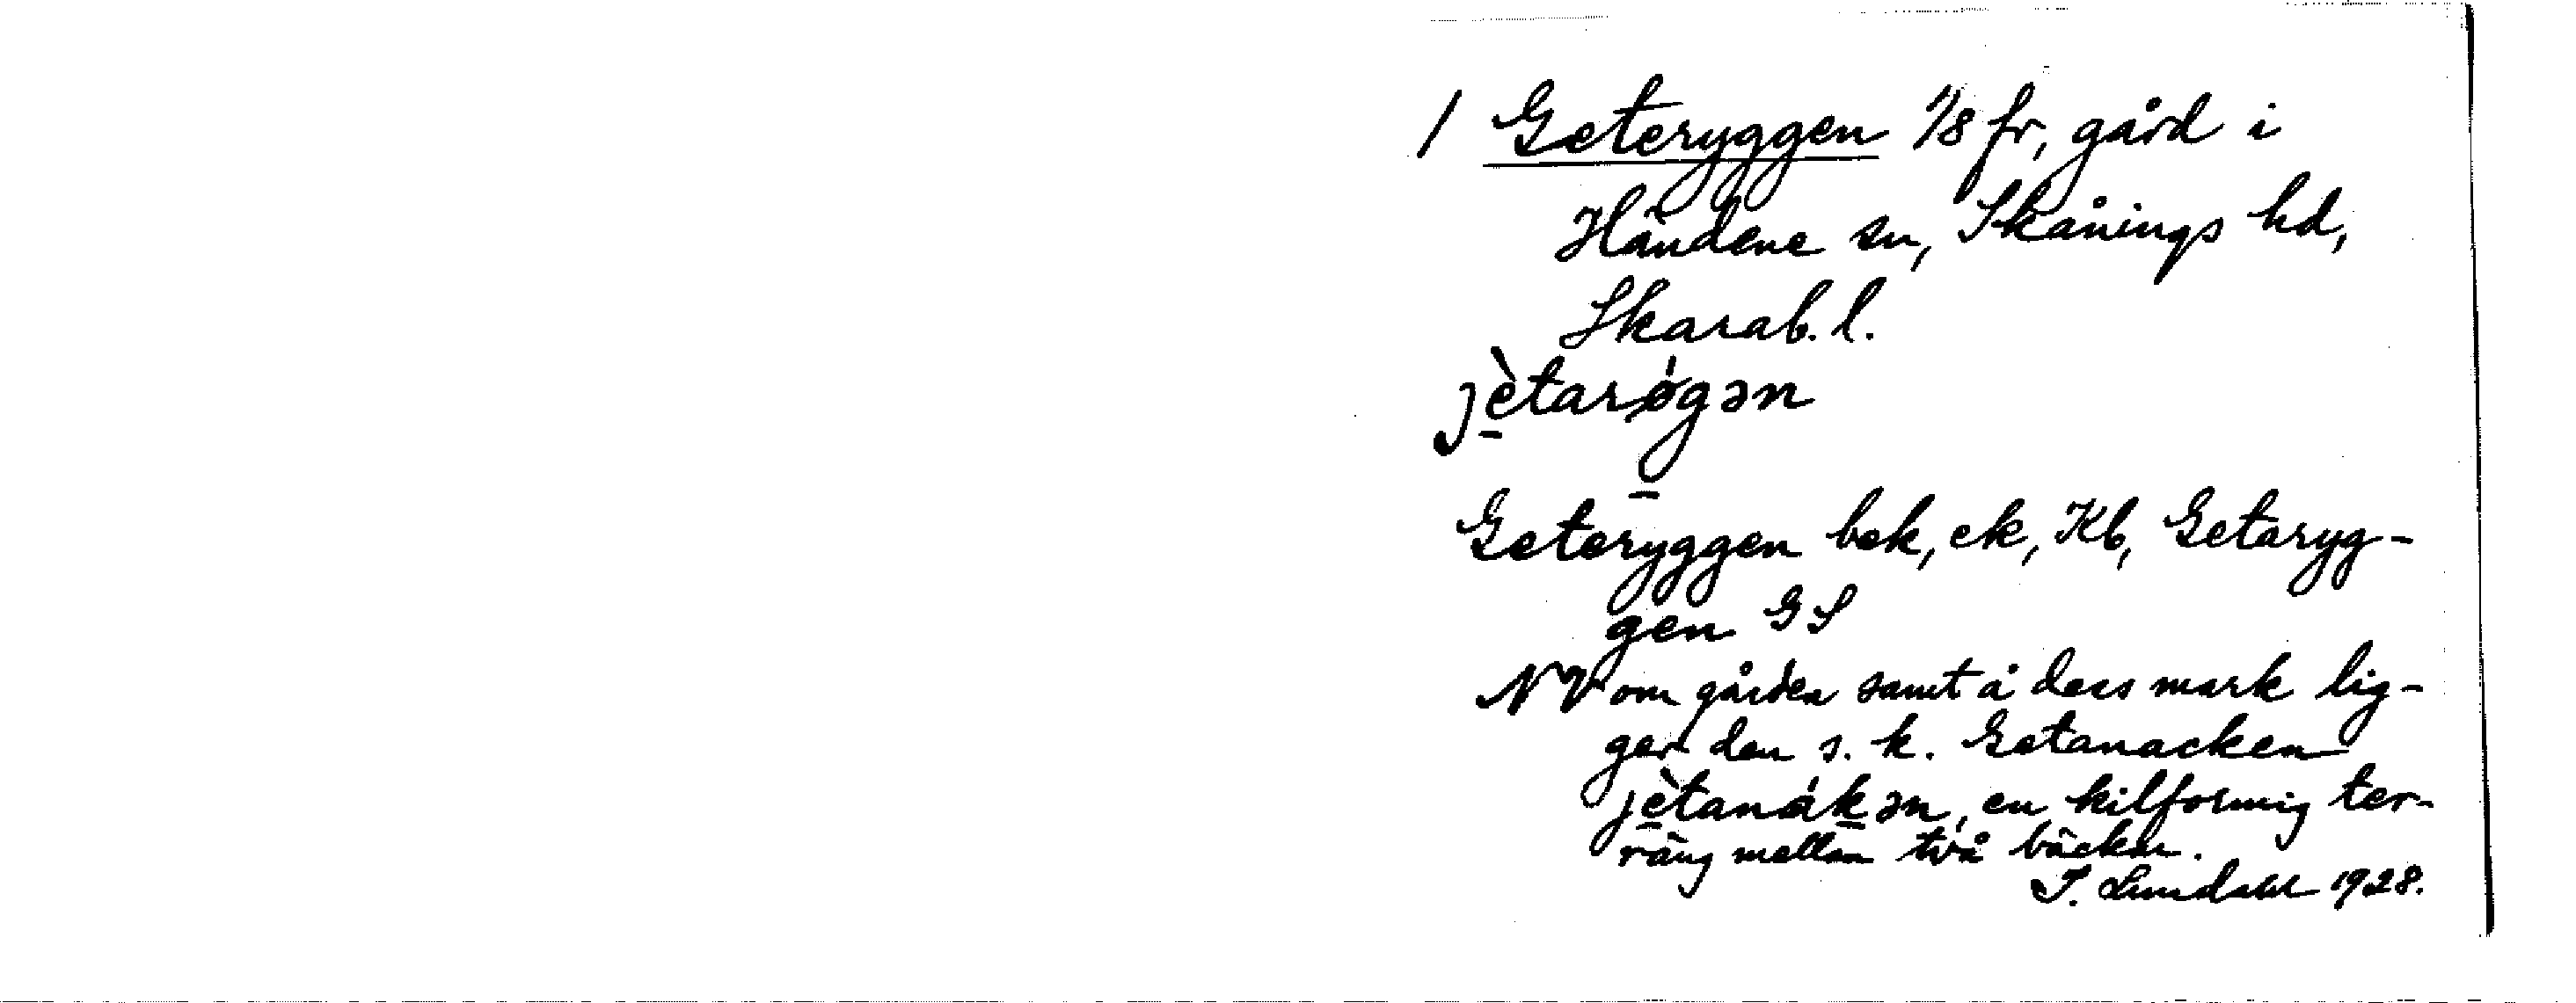 / Geteryggen 1/8 fr, gård i
Händene sn, Skånings hd,
Skarab. l.
jètarǿgən
Geteryggen bek, ek, Kb, Getaryg-
gen GS
NV om gården samt å dess mark lig-
ger den s. k. Getanacken
jètanákən, en kilformig ter-
räng mellan två bäckar.
I. Lundahl 1928.